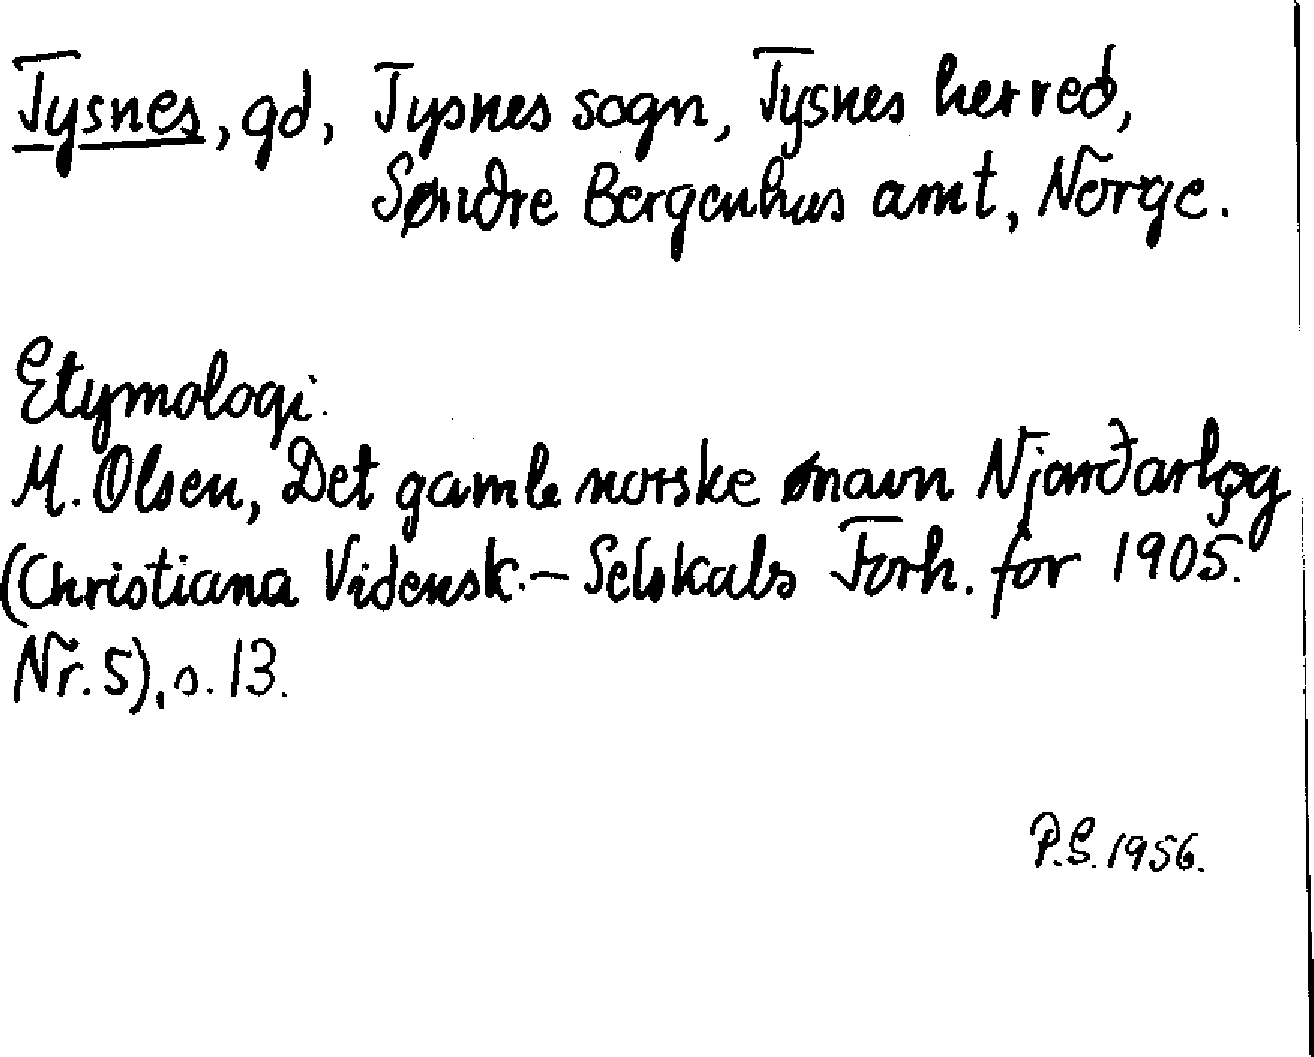 Tysnes, gd, Tysnes sogn, Tysnes herred,
Søndre Bergenhus amt, Norge.
Etymologi.
M. Olsen, Det gamle norske ønavn Njarðarlǫg
(Christiana Vidensk.-Selskabs Forh. for 1905.
Nr. 5), s. 13.
P.S. 1956.